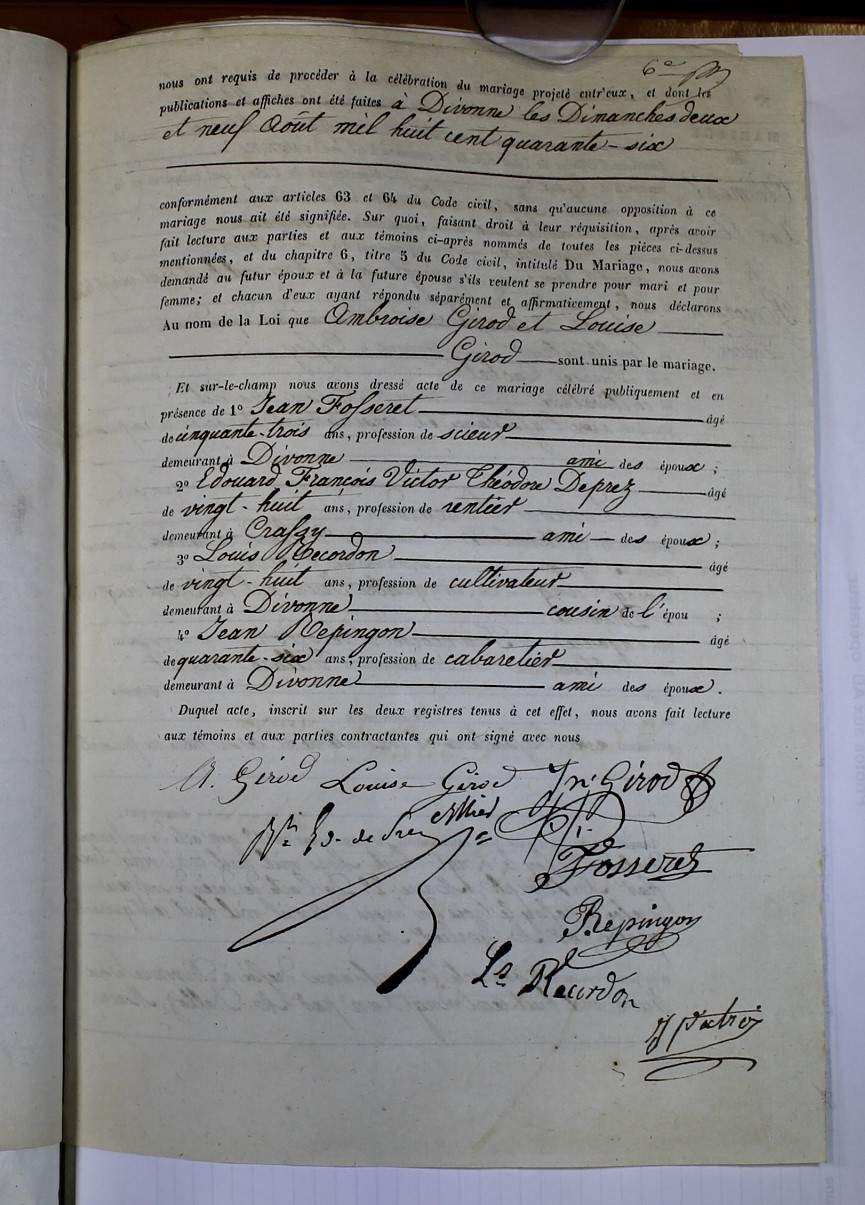 nous ont requis de procéder à la célébration du mariage projeté entr'eux, et dont les
publications et affiches ont été faites à Divonne les Dimanches deux
et neuf Août mil huit cent quarante-six
conformément aux articles 63 et 64 du Code civil, sans qu'aucune opposition à ce
mariage nous ait été signifiée. Sur quoi, faisant droit à leur réquisition, après avoir
fait lecture aux parties et aux témoins ci-après nommés de toutes les pièces ci-dessus
mentionnées, et du chapitre 6, titre 5 du Code civil, intitulé Du Mariage, nous avons
demandé au futur époux et à la future épouse s'ils veulent se prendre pour mari et pour
femme; et chacun d'eux ayant répondu séparément et affirmativement, nous déclarons
Au nom de la Loi que Ambroise Girod et Louise
Girod sont unis par le mariage.
Et sur-le-champ nous avons dressé acte de ce mariage célébré publiquement et en
présence de 1° Jean Fosseret âgé
de cinquante-trois ans, profession de scieur
demeurant à Divonne ami des époux;
2° Edouard François Victor Théodore Deprez âgé
de vingt-huit ans, profession de rentier
demeurant à Crassy ami des époux;
3° Louis Recordon âgé
de vingt-huit ans, profession de cultivateur
demeurant à Divonne cousin de l'épou ;
4° Jean Repingon âgé
de quarante-six ans, profession de cabaretier
demeurant à Divonne ami des époux.
Duquel acte, inscrit sur les deux registres tenus à cet effet, nous avons fait lecture
aux témoins et aux parties contractantes qui ont signé avec nous
A. Girod Louise Girod Jn. Girod
Fosseret
Repingon
Ls Recordon